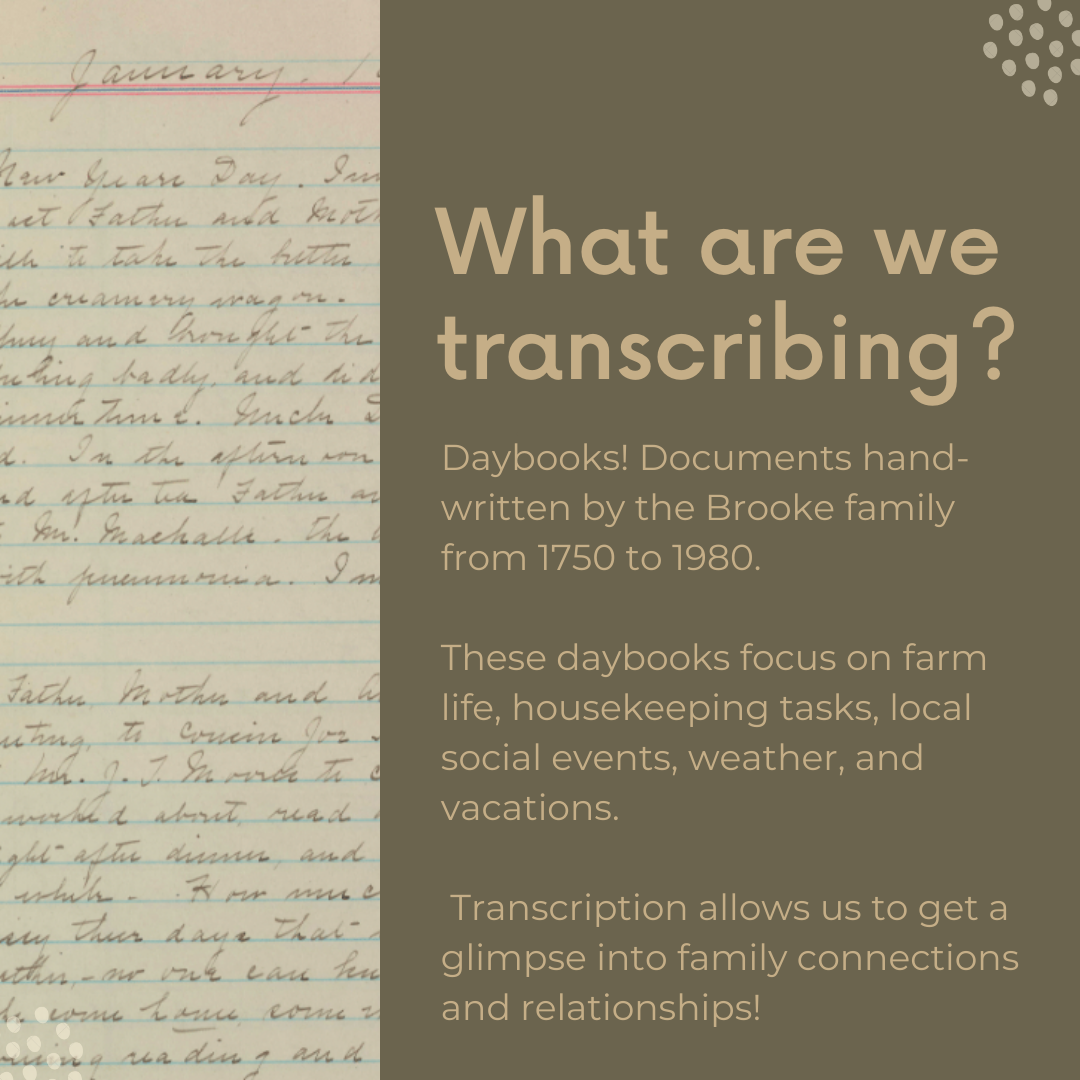 January. 1
New Years Day.
Father and
to take the
creamery wagon.
and thought the
badly, and did
time.
In the afternoon
after tea Father
Mr. Machalle. the
with pneumonia.
Father, Mother and
to cousin Joe
Mr. J. T. Moore to
worked about, read
after dinner, and
while. How much
these days that
no one can
come home, some
reading and
What are we
transcribing?
Daybooks! Documents hand-
written by the Brooke family
from 1750 to 1980.
These daybooks focus on farm
life, housekeeping tasks, local
social events, weather, and
vacations.
Transcription allows us to get a
glimpse into family connections
and relationships!